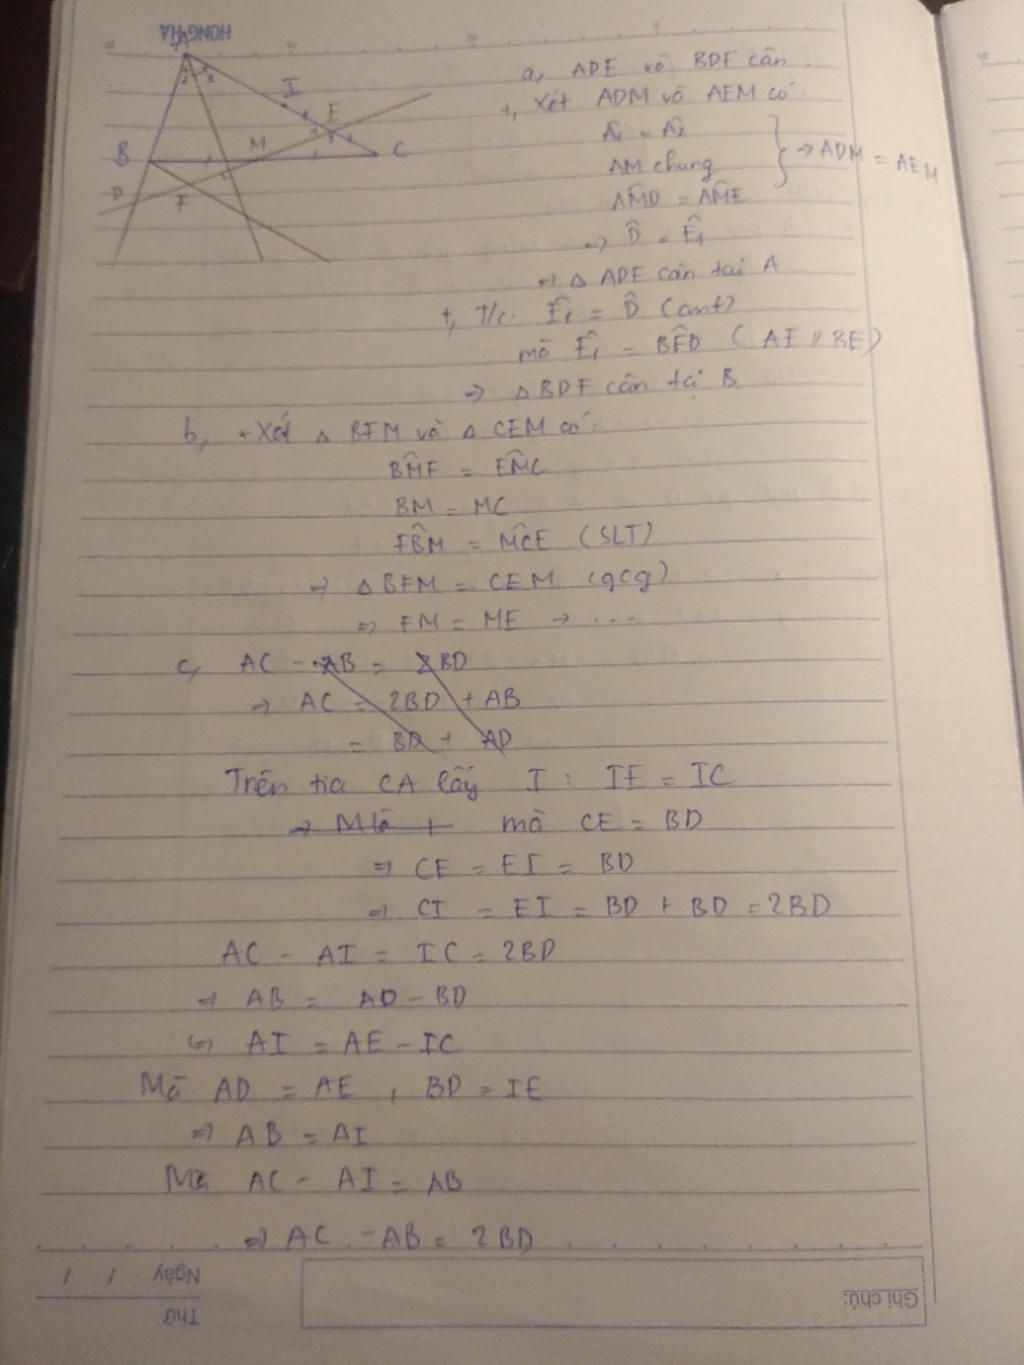 HONG HA
A
1 2
I
E
M
B
C
D
F
a, ADE và BDF cân
+, Xét ADM và AEM có
Â1 = Â2
AM chung => ADM = AEM
AM̂D = AM̂E
=> D̂ = Ê1
=> △ ADE cân tai A
+, T/c: Ê1 = D̂ (cmt)
mà Ê1 = BF̂D ( AE // BE)
=> △BDF cân tại B
b, + Xét △ BFM và △ CEM có:
BM̂F = EM̂C
BM = MC
FB̂M = MĈE (SLT)
=> △BFM = CEM (gcg)
=> FM = ME → ...
c, AC - AB = 2BD
=> AC = 2BD + AB
= BD + AD
Trên tia CA lấy I : IE = IC
=> M là + mà CE = BD
=> CE = EI = BD
=> CI = EI = BD + BD = 2BD
AC - AI = IC = 2BD
=> AB = AD - BD
=> AI = AE - IC
Mà AD = AE , BD = IE
=> AB = AI
Mà AC - AI = AB
=> AC - AB = 2BD
Ngày / /
Thứ
Ghi chú: